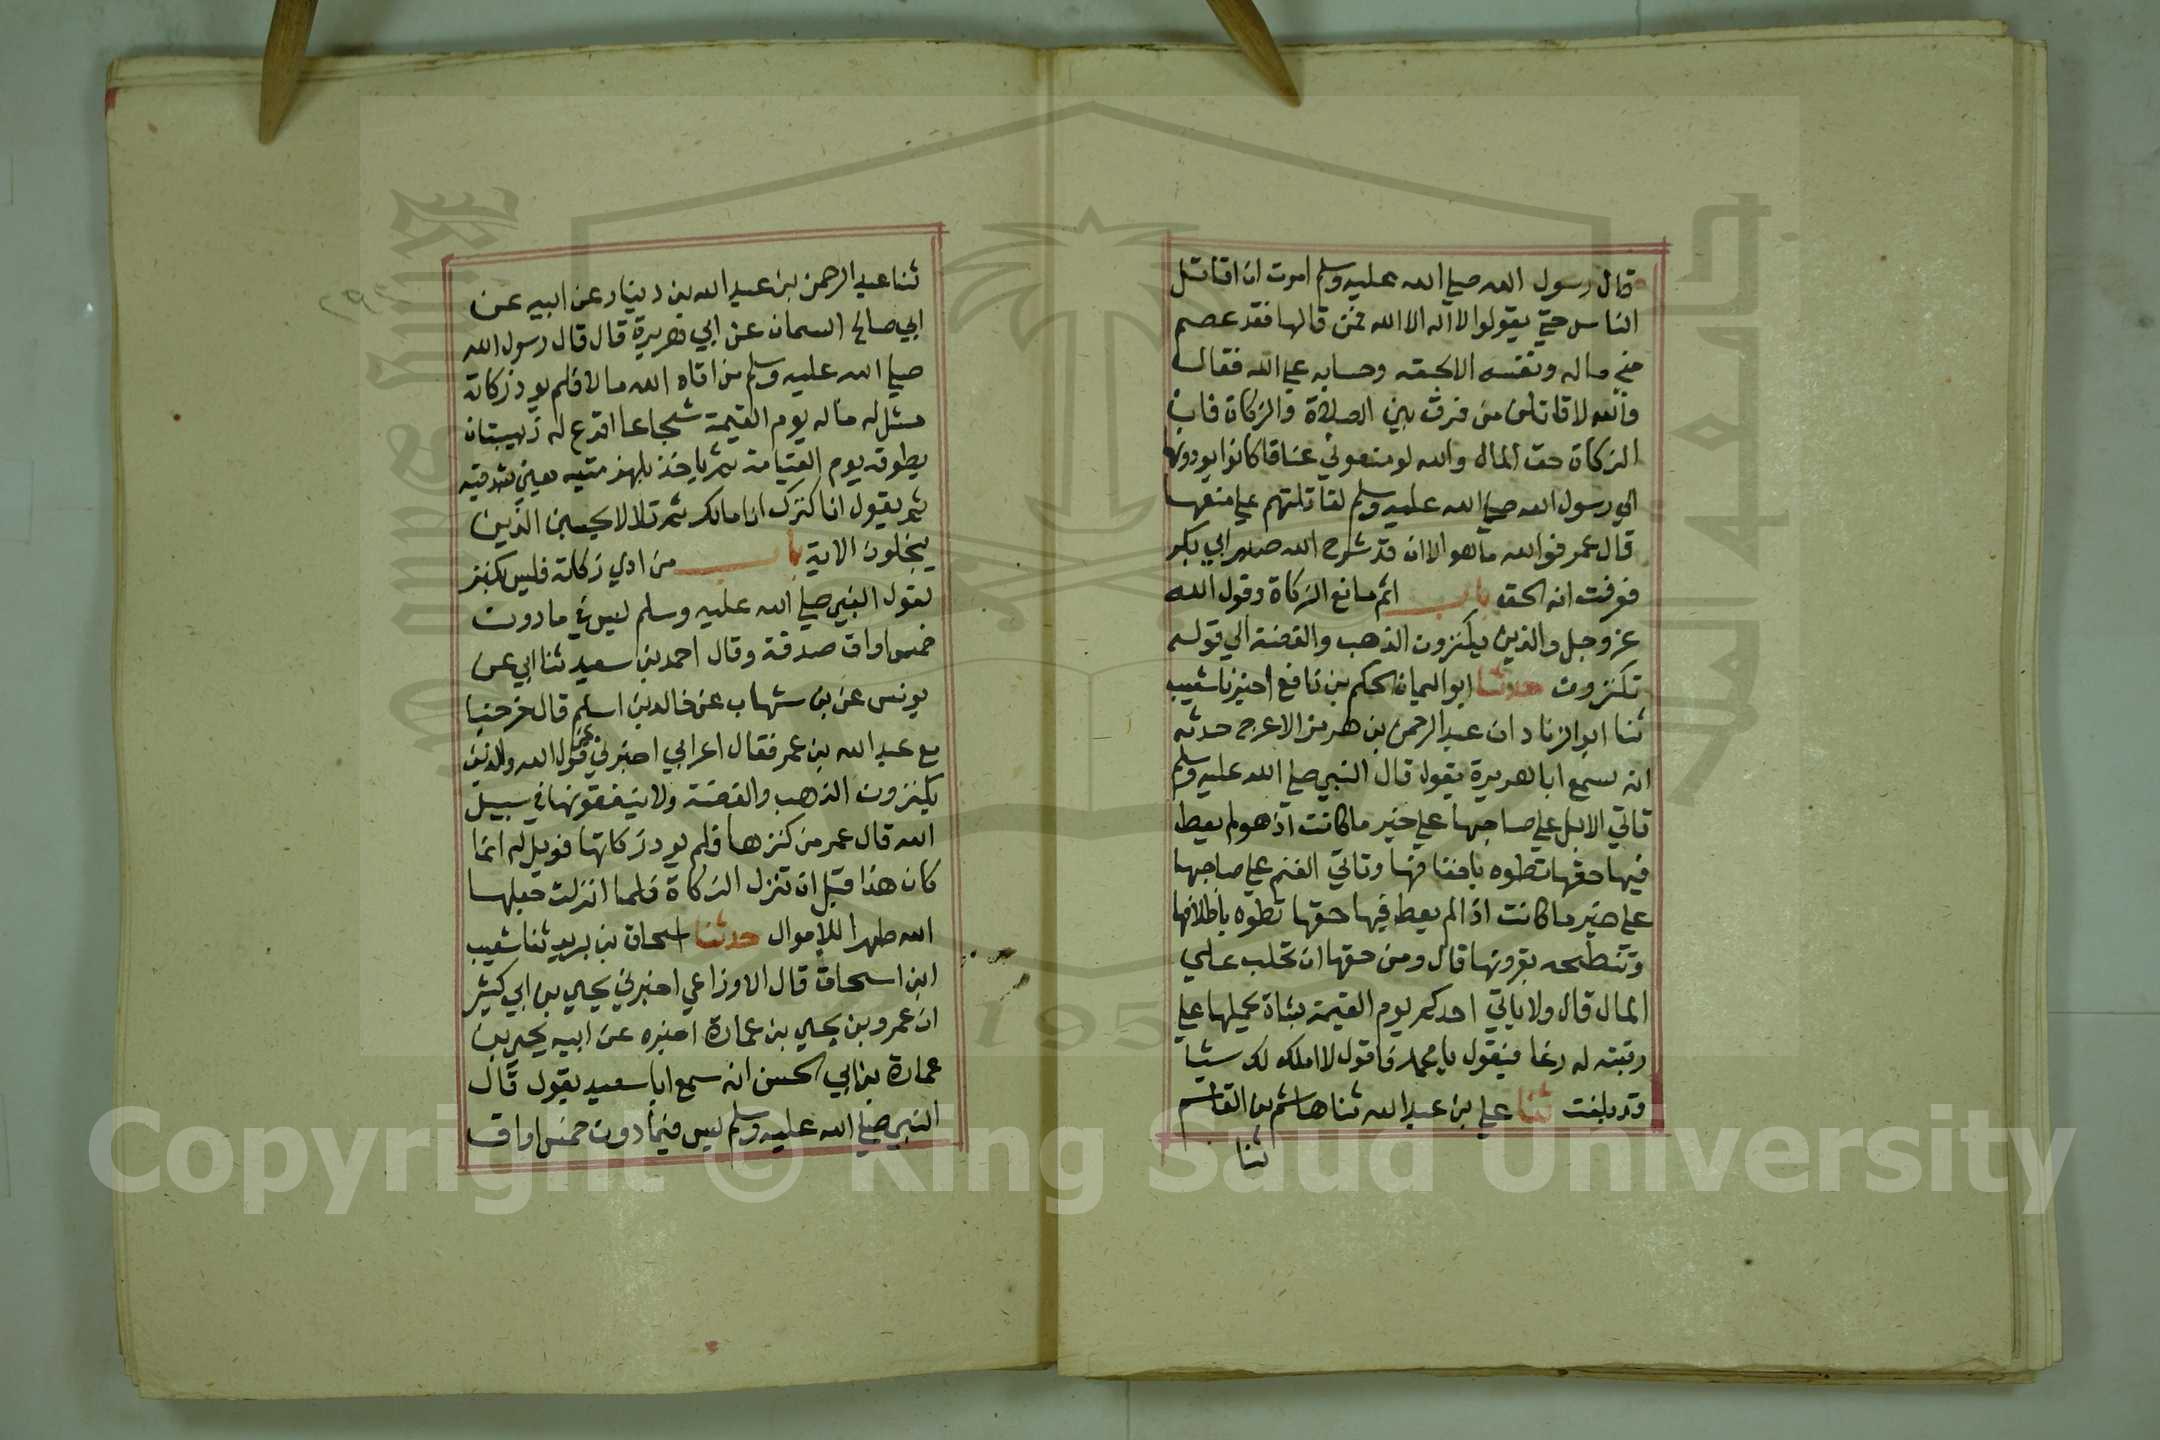 قال رسول الله صلي الله عليه وسلم امرت ان اقاتل
الناس حتي يقولوا لا اله الا الله فمن قالها فقد عصم
مني ماله ونفسه الا بحقه وحسابه علي الله فقال
والله لاقاتلن من فرق بين الصلاة والزكاة فان
الزكاة حق المال والله لو منعوني عناقا كانوا يودونها
الي رسول الله صلي الله عليه وسلم لقاتلتهم علي منعها
قال عمر فوالله ما هو الا ان قد شرح الله صدر ابي بكر
فعرفت انه الحق باب اثم مانع الزكاة وقول الله
عز وجل والذين يكنزون الذهب والفضة الي قوله
تكنزون حدثنا ابو اليمان الحكم بن نافع اخبرنا شعيب
ثنا ابو الزناد ان عبد الرحمن بن هرمز الاعرج حدثه
انه سمع ابا هريرة يقول قال النبي صلي الله عليه وسلم
تاتي الابل علي صاحبها علي خير ما كانت اذ هو لم يعط
فيها حقها تطوه باخفافها وتاتي الغنم علي صاحبها
علي خير ما كانت اذا لم يعط فيها حقها تطوه باظلافها
وتنطحه بقرونها قال ومن حقها ان تحلب علي
المال قال ولا ياتي احدكم يوم القيمة بشاة يحملها علي
رقبته له رغا فيقول يا محمد فاقول لا املك لك شيا
قد بلغت ثنا علي بن عبد الله ثنا هاشم بن القاسم
ثنا
ثنا عبد الرحمن بن عبد الله بن دينار عن ابيه عن
ابي صالح السمان عن ابي هريرة قال قال رسول الله
صلي الله عليه وسلم من اتاه الله مالا فلم يود زكاته
مثل له ماله يوم القيمة شجاعا اقرع له زبيبتان
يطوقه يوم القيامة ثم ياخذ بلهزمتيه يعني شدقيه
ثم يقول انا كنزك انا مالك ثم تلا لا يحسبن الذين
يبخلون الاية باب من ادي زكاته فليس بكنز
لقول النبي صلي الله عليه وسلم ليس في ما دون
خمس اواق صدقة وقال احمد بن سعيد ثنا ابي عن
يونس عن بن شهاب عن خالد بن اسلم قال خرجنا
مع عبد الله بن عمر فقال اعرابي اخبرني عن قول الله والذين
يكنزون الذهب والفضة ولا ينفقونها في سبيل
الله قال عمر من كنزها فلم يود زكاتها فويل له انما
كان هذا قبل ان تنزل الزكاة فلما انزلت جعلها
الله طهرا للاموال حدثنا اسحاق بن يزيد ثنا شعيب
ابن اسحاق قال الاوزاعي اخبرني يحيي بن ابي كثير
ان عمرو بن يحيي بن عمارة اخبره عن ابيه يحيي بن
عمارة بن ابي الحسن انه سمع ابا سعيد يقول قال
النبي صلي الله عليه وسلم ليس فيما دون خمس اواق
1957
Copyright © King Saud University